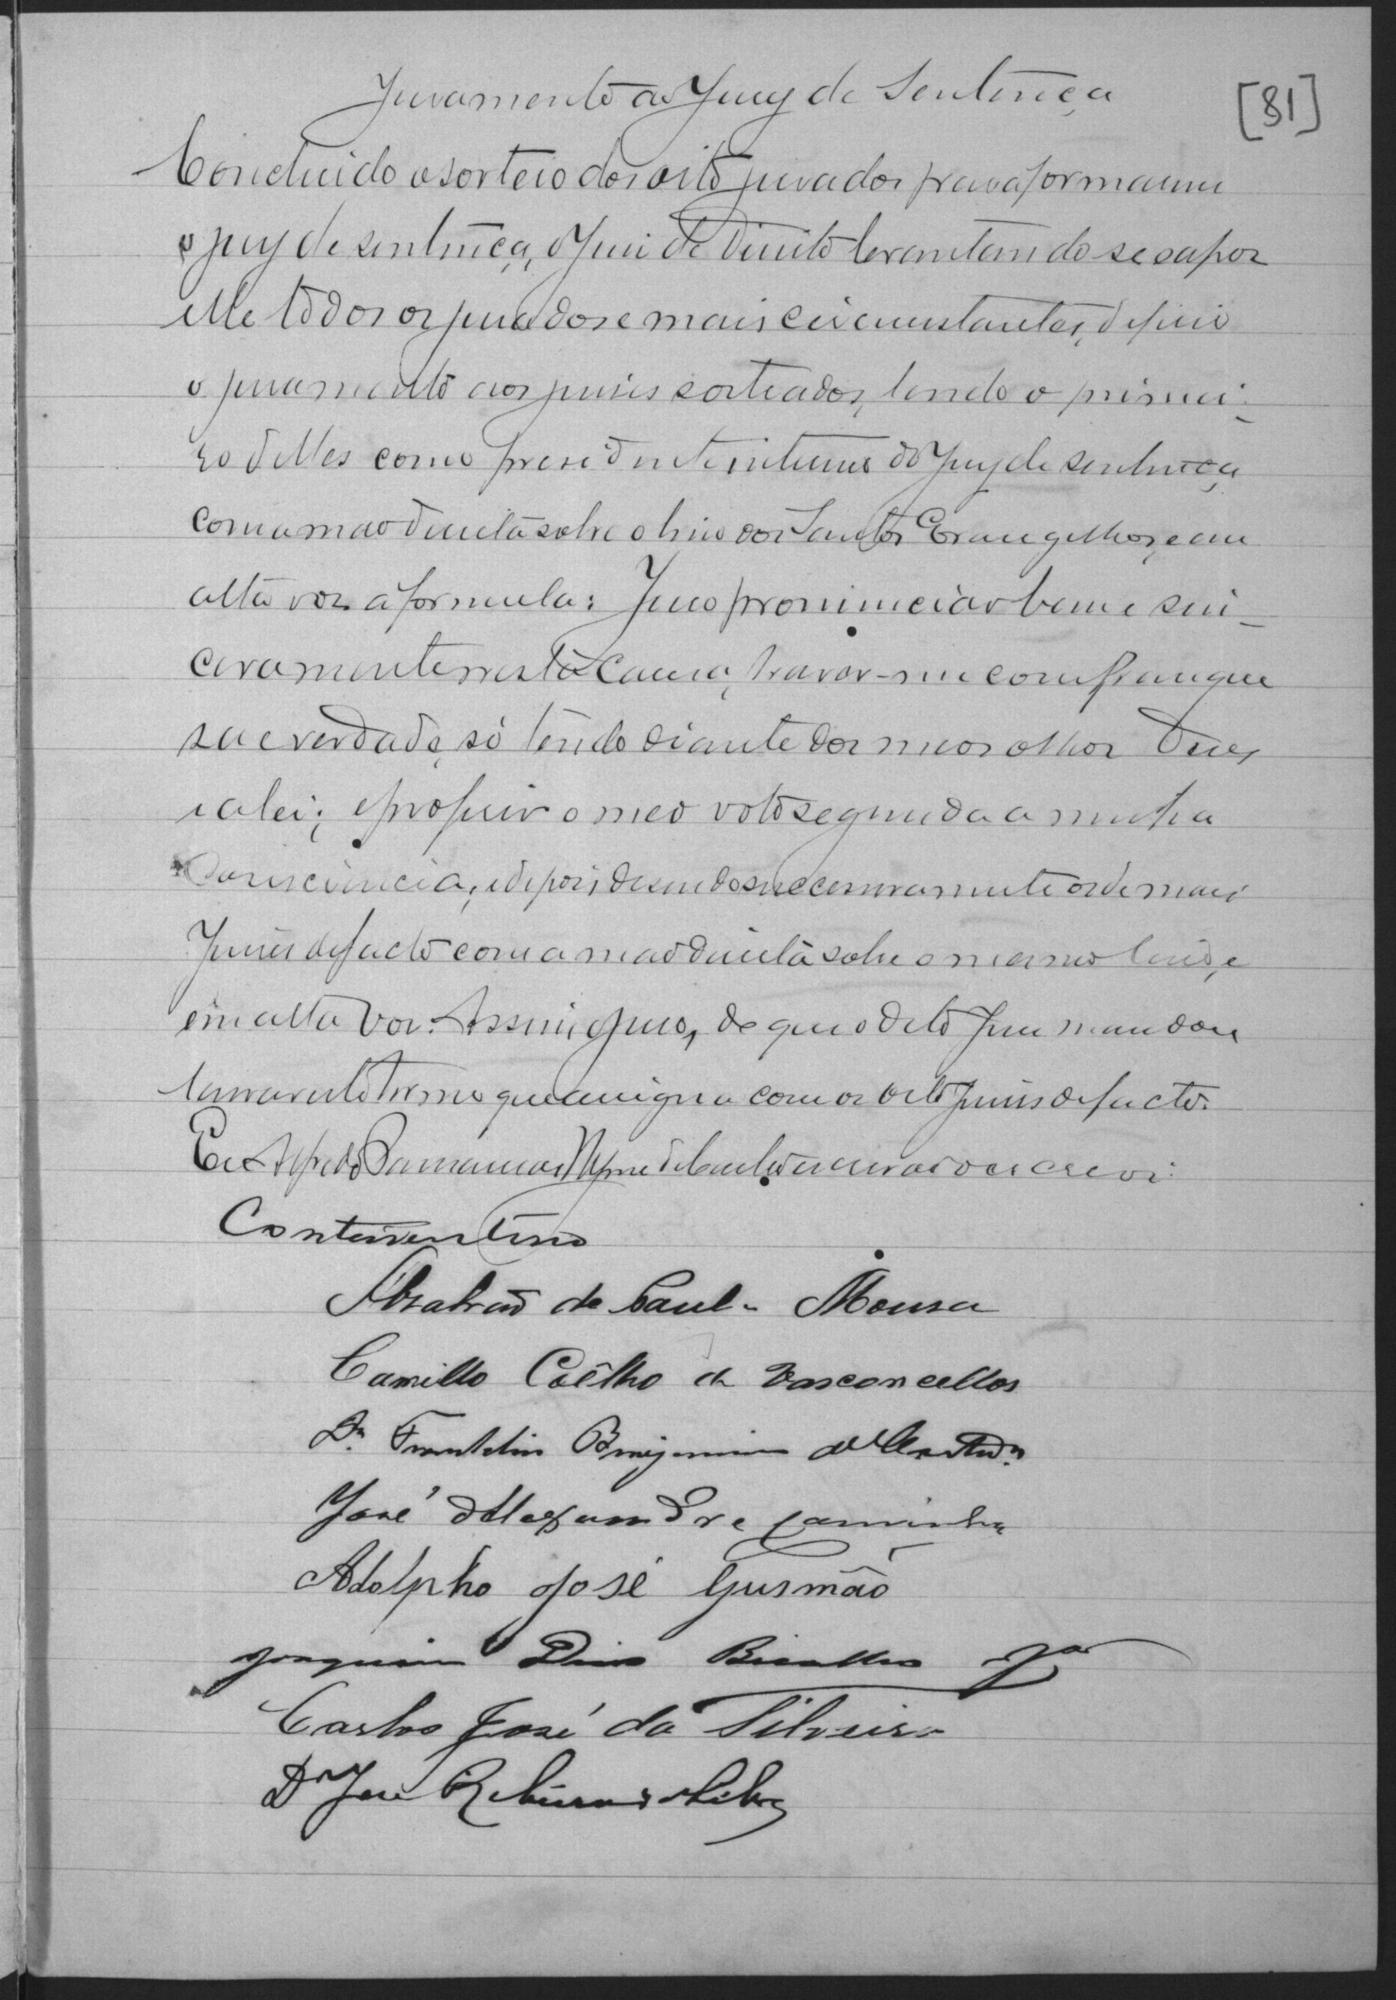 Juramento ao Jury de Sentença
[81]
Concluido o sorteio dos oito jurados para formarem
o jury de sentença, o Juiz de Direito levantando se e apoz
elle todos os jurados e mais circumstantes, deferio
o juramento aos juises sorteados, lendo o primei-
ro delles como presidente interino do Jury de sentença
com a mão direita sobre o livro dos Santos Evangelhos, e em
alta voz a formula: Juro pronunciar bem e sin-
ceramente nesta causa, haver-me com franque
sa e verdade, só tendo diante dos meos olhos Deus
e a lei; e proferir o meo voto segundo a minha
Consciencia, e depois desendo successivamente os demais
Juises de facto com a mão direita sobre o mesmo livro, e
em alta voz. Assim o juro, de que o dito Juiz mandou
lavrar este termo que assigna com os oito Juises de facto.
Eu Alfredo escrivão o escrevi.
Constantino
Abrahão de Paula Moura
Camillo Coêlho de Vasconcellos
Dr. Franklin Benjamin de
José Alexandre Caminha
Adolpho José Gusmão
Joaquim Dias Jor
Carlos José da Silveira
Dr José Silva